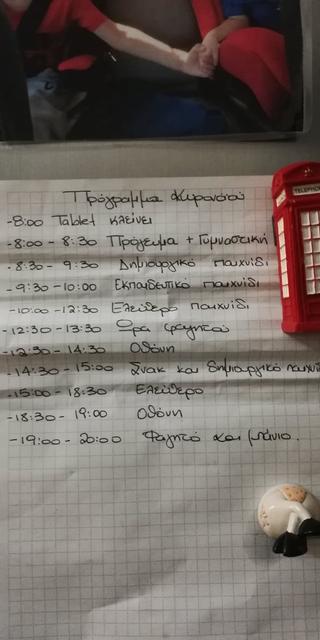 Πρόγραμμα
-8:00 Tablet κλείνει
-8:00 - 8:30 Πρόγευμα + Γυμναστική
-8:30 - 9:30 Δημιουργικό παιχνίδι
-9:30 - 10:00 Εκπαιδευτικό παιχνίδι
-10:00 - 12:30 Ελεύθερο παιχνίδι
-12:30 - 13:30 Ώρα φαγητού
-12:30 - 14:30 Οθόνη
-14:30 - 15:00 Σνακ και δημιουργικό
-15:00 - 18:30 Ελεύθερο
-18:30 - 19:00 Οθόνη
-19:00 - 20:00 Φαγητό και μπάνιο.
TELEPHONE